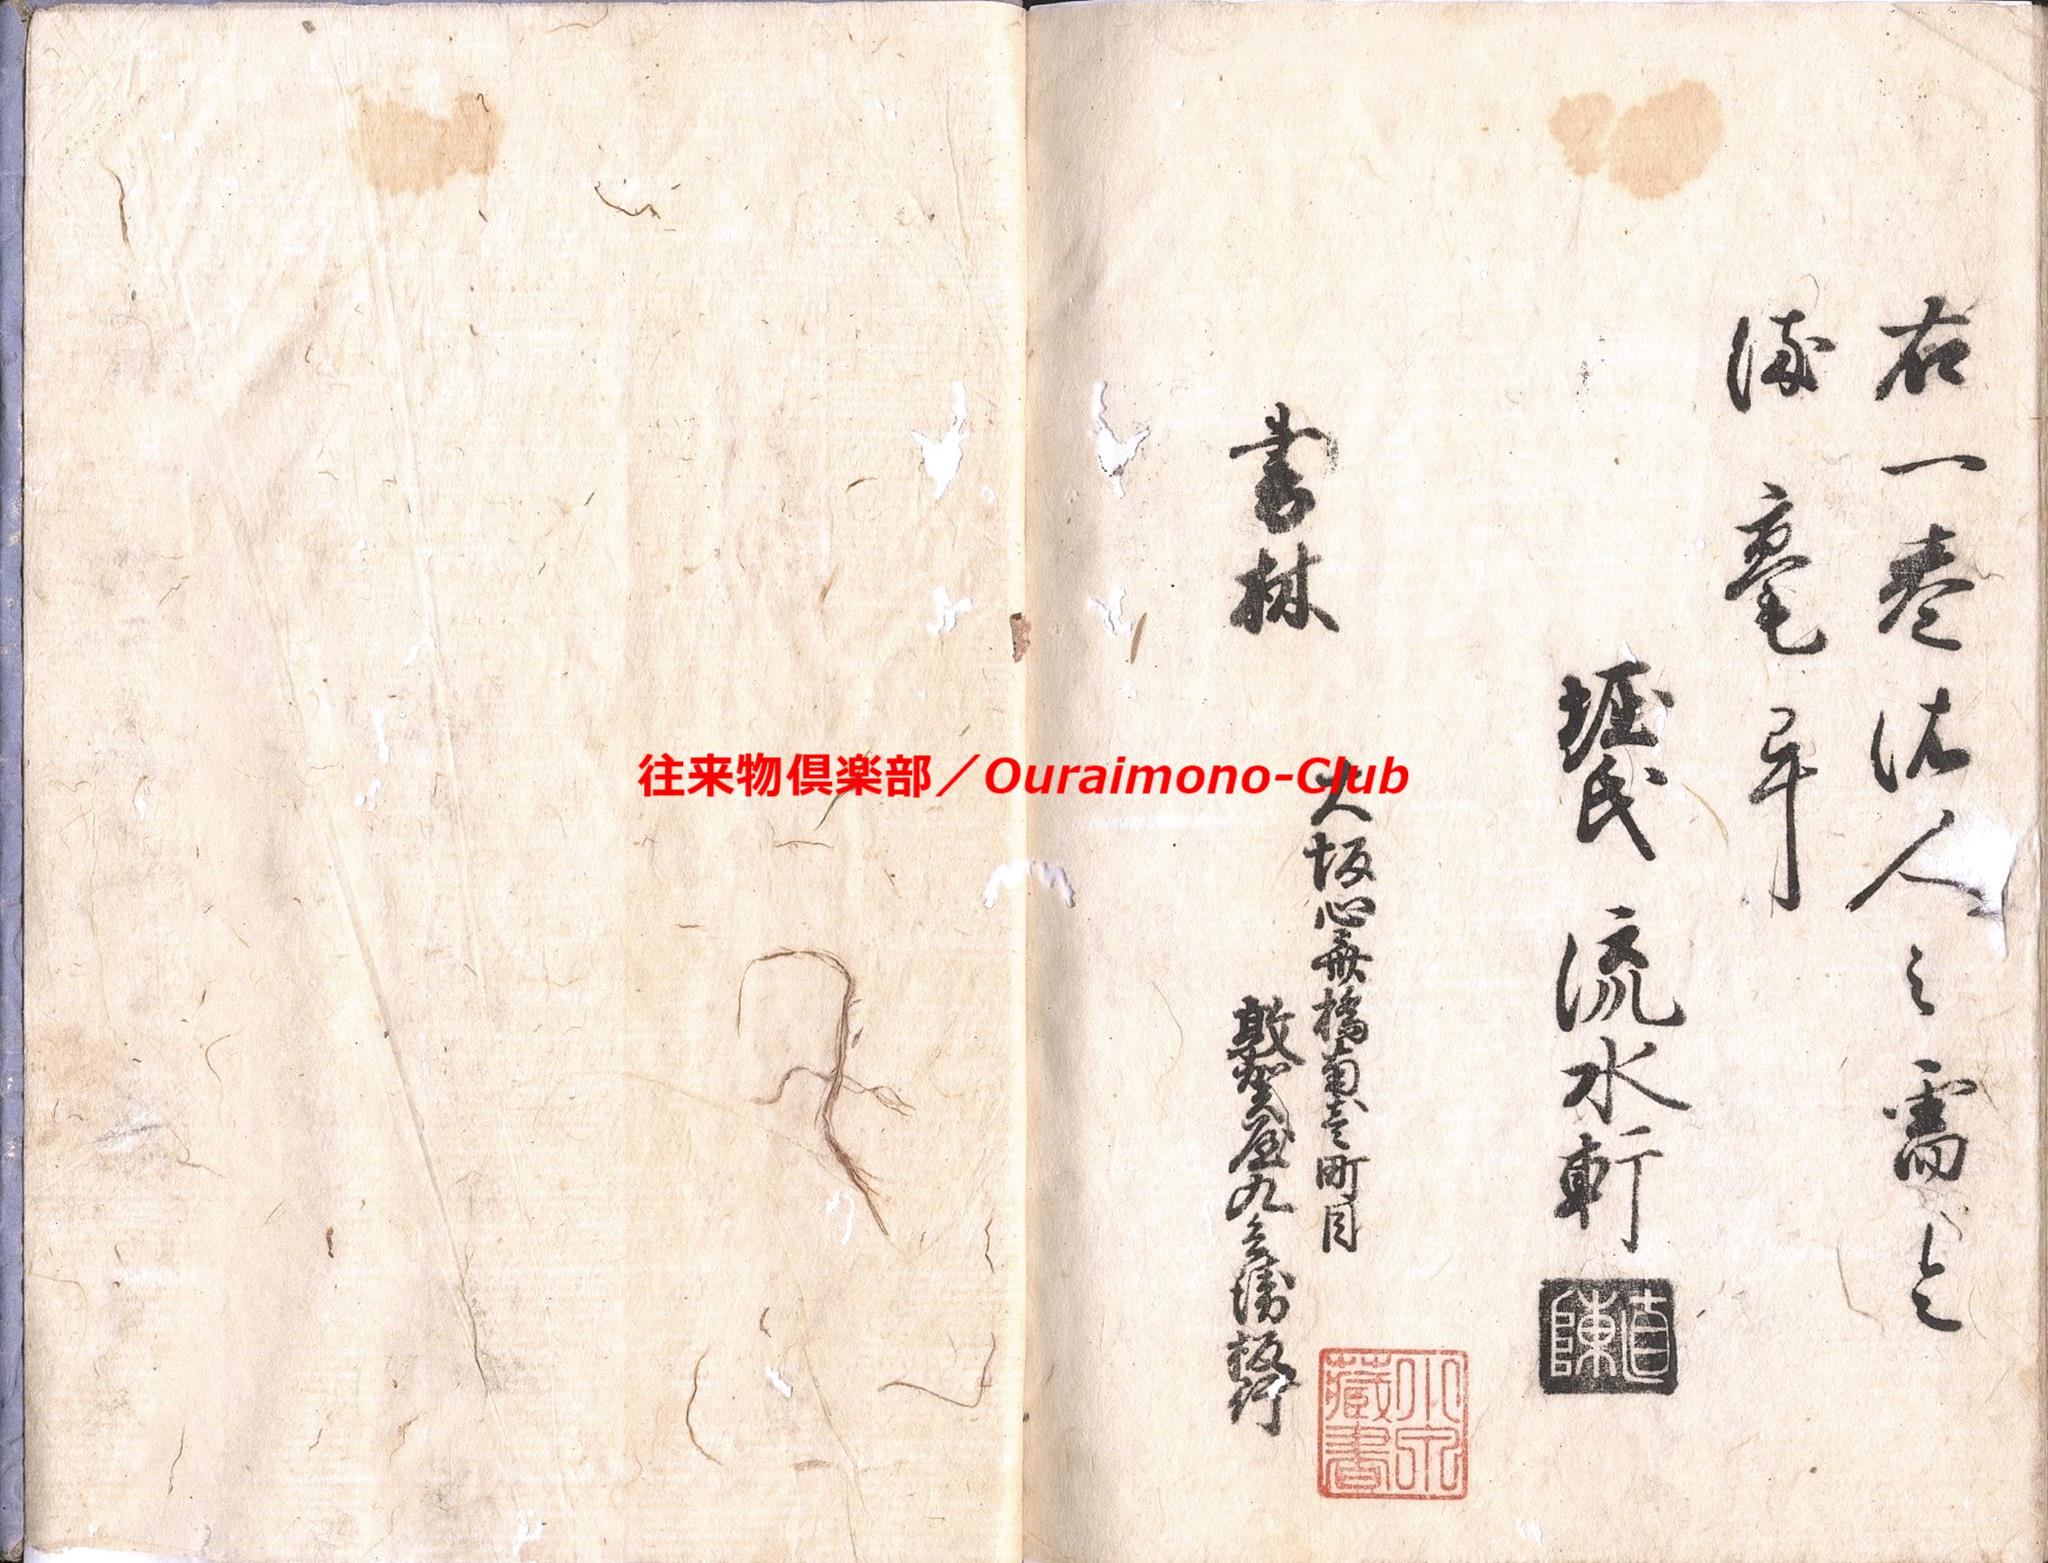 右一巻依人之需令
染毫畢
堀氏 流水軒
直陳
書林
大坂心斎橋南壱町目
敦賀屋九兵衛板行
蔵書
往来物倶楽部／Ouraimono-Club